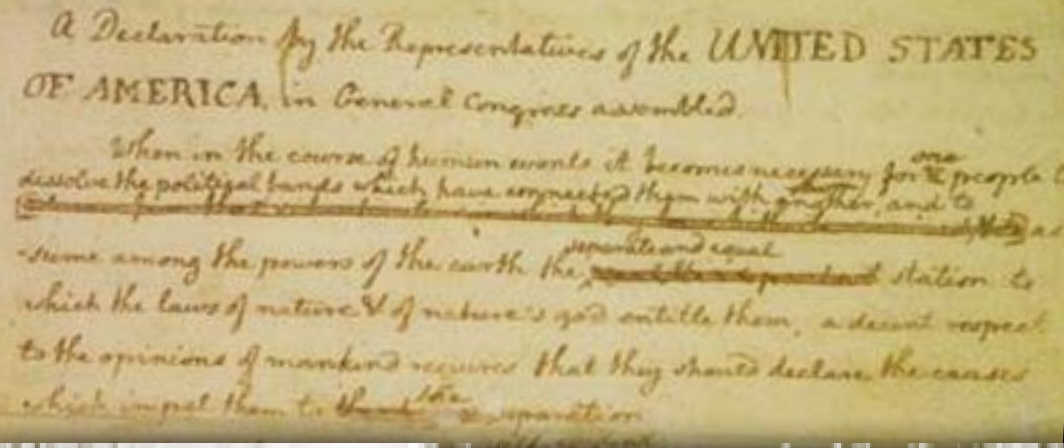 A Declaration by the Representatives of the UNITED STATES
OF AMERICA, in General Congress assembled.
When in the course of human events it becomes necessary for one people to
dissolve the political bands which have connected them with another, and to
as
-sume among the powers of the earth the separate and equal station to
which the laws of nature & of nature's god entitle them, a decent respect
to the opinions of mankind requires that they should declare the causes
which impel them to the separation